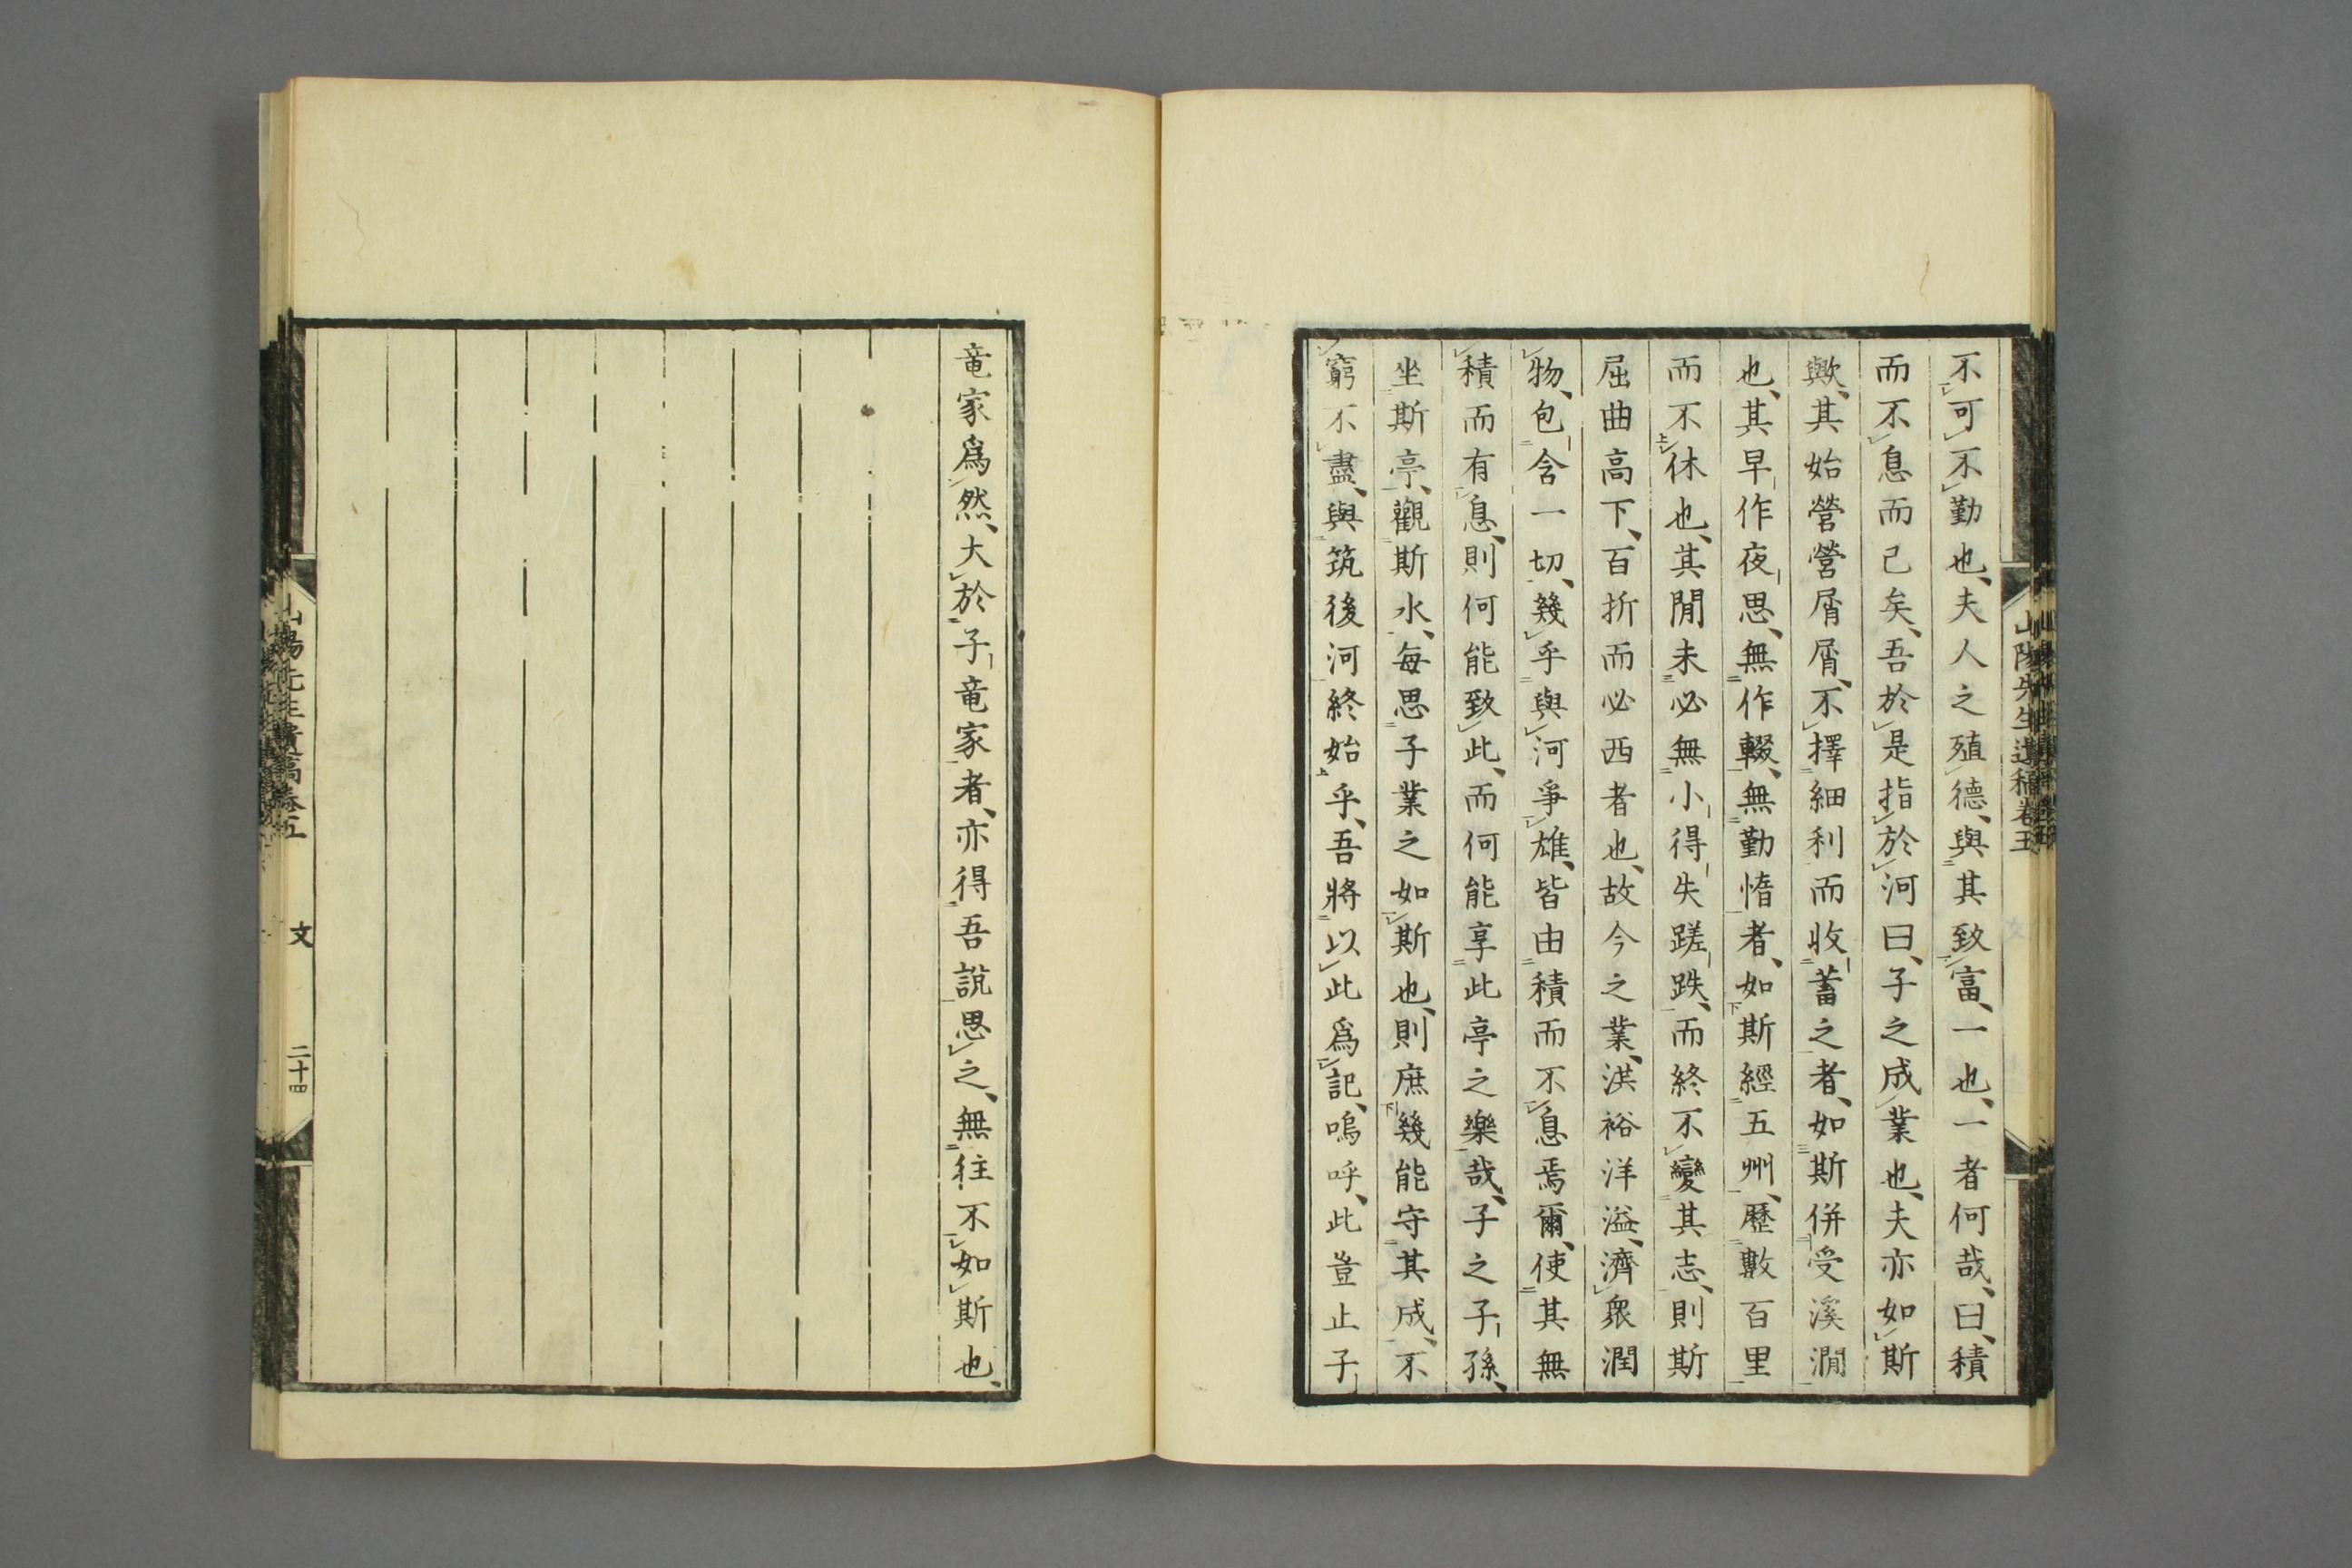 山陽先生遺稿卷五
不可不勤也、夫人之殖德、與其致富、一也、一者何哉、曰、積
而不息而已矣、吾於是指於河曰、子之成業也、夫亦如斯
歟、其始營營屑屑、不擇細利而收蓄之者、如斯併受溪澗
也、其早作夜思、無作輟、無勤惰者、如斯經五州、歷數百里
而不休也、其間未必無小得失蹉跌、而終不變其志、則斯
屈曲高下、百折而必西者也、故今之業、洪裕洋溢、濟衆潤
物、包含一切、幾乎與河爭雄、皆由積而不息焉爾、使其無
積而有息、則何能致此、而何能享此亭之樂哉、子之子孫、
坐斯亭、觀斯水、每思子業之如斯也、則庶幾能守其成、不
窮不盡、與筑後河終始乎、吾將以此為記、嗚呼、此豈止子
竜家為然、大於子竜家者、亦得吾說思之、無往不如斯也、
山陽先生遺稿卷五
文
二十四